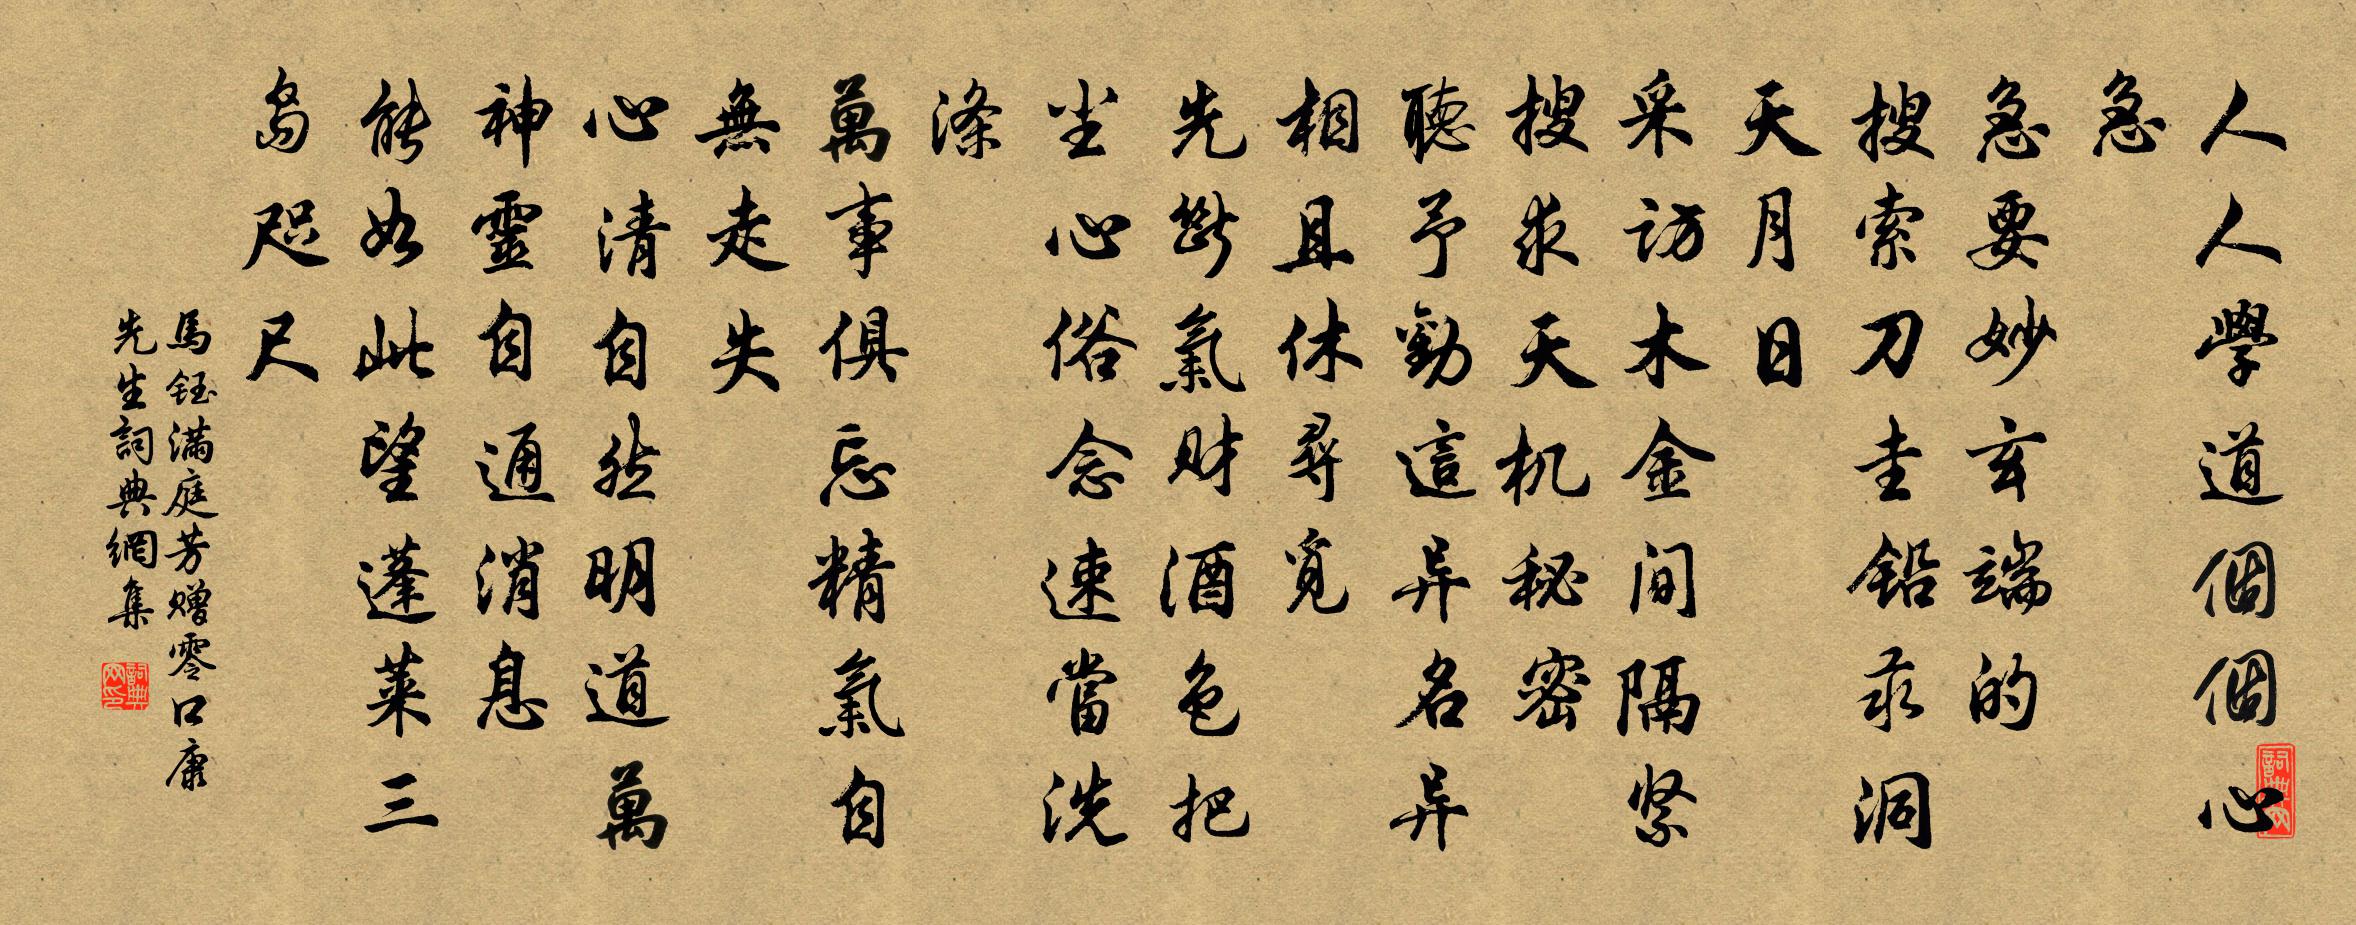 人人學道個個心
急
急要妙玄端的
搜索刀圭鉛汞洞
天月日
采访木金间隔紧
搜求天机秘密
聽予勸這异名异
相且休尋覓
先斷氣财酒色把
尘心俗念速當洗
滌
萬事俱忘精氣自
無走失
心清自然明道萬
神靈自通消息
能如此望蓬莱三
島咫尺
馬钰满庭芳赠零口康
先生詞典網集
詞典网
詞典网印